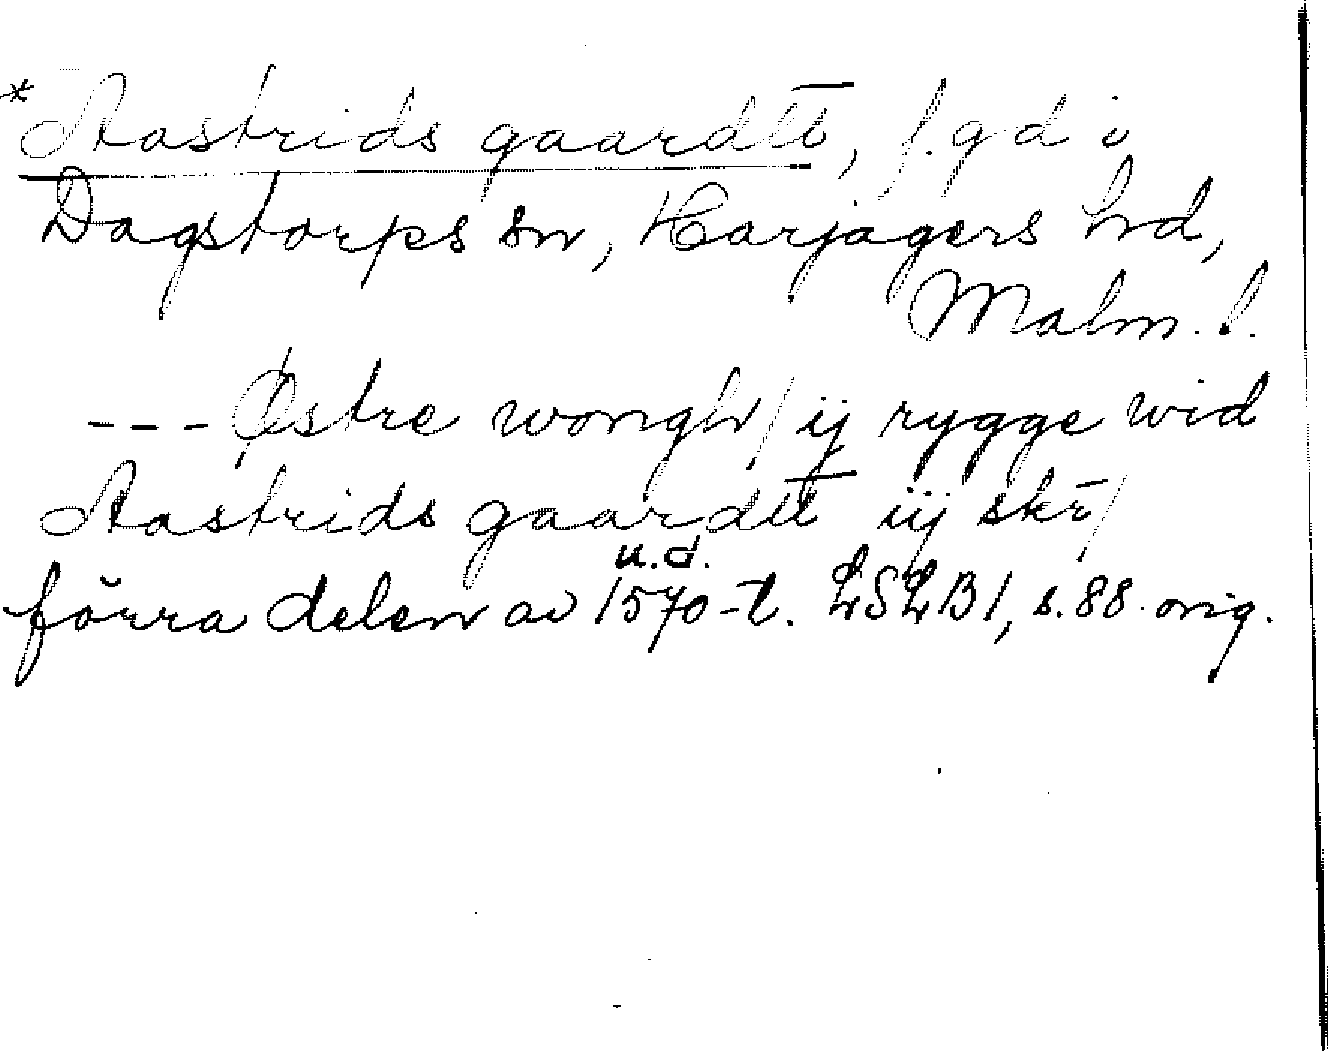 *Aastrids gaardtt, f.gd i
Dagstorps sn, Harjagers hd,
Malm. l.
--- Østre wongh / ij rygge wid
Aastrids gaardtt iij skr̄ /
u.d.
förra delen av 1570-t. LSLB1, s. 88. orig.